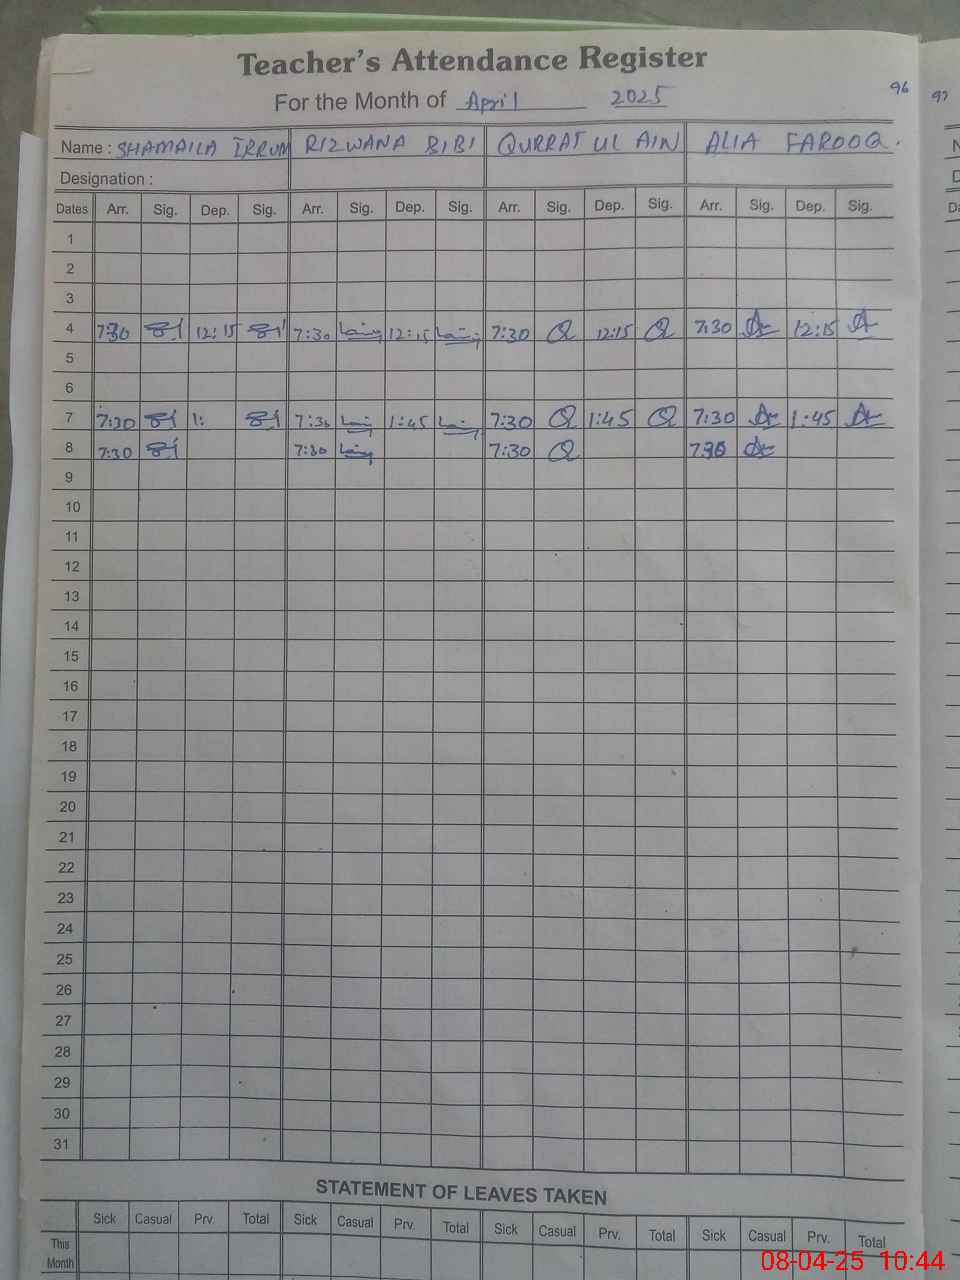 Teacher's Attendance Register
For the Month of April 2025
96 97
Name : SHAMAILA IRRUM RIZWANA BIBI QURRAT UL AIN ALIA FAROOQ.
Designation :
Dates Arr. Sig. Dep. Sig. Arr. Sig. Dep. Sig. Arr. Sig. Dep. Sig. Arr. Sig. Dep. Sig.
1
2
3
4 7:30 12:15 7:30 12:15 7:30 Q 12:15 Q 7:30 12:15
5
6
7 7:30 1: 7:30 1:45 7:30 Q 1:45 Q 7:30 1:45
8 7:30 7:30 7:30 Q 7:30
9
10
11
12
13
14
15
16
17
18
19
20
21
22
23
24
25
26
27
28
29
30
31
STATEMENT OF LEAVES TAKEN
Sick Casual Prv. Total Sick Casual Prv. Total Sick Casual Prv. Total Sick Casual Prv. Total
This
Month
08-04-25 10:44